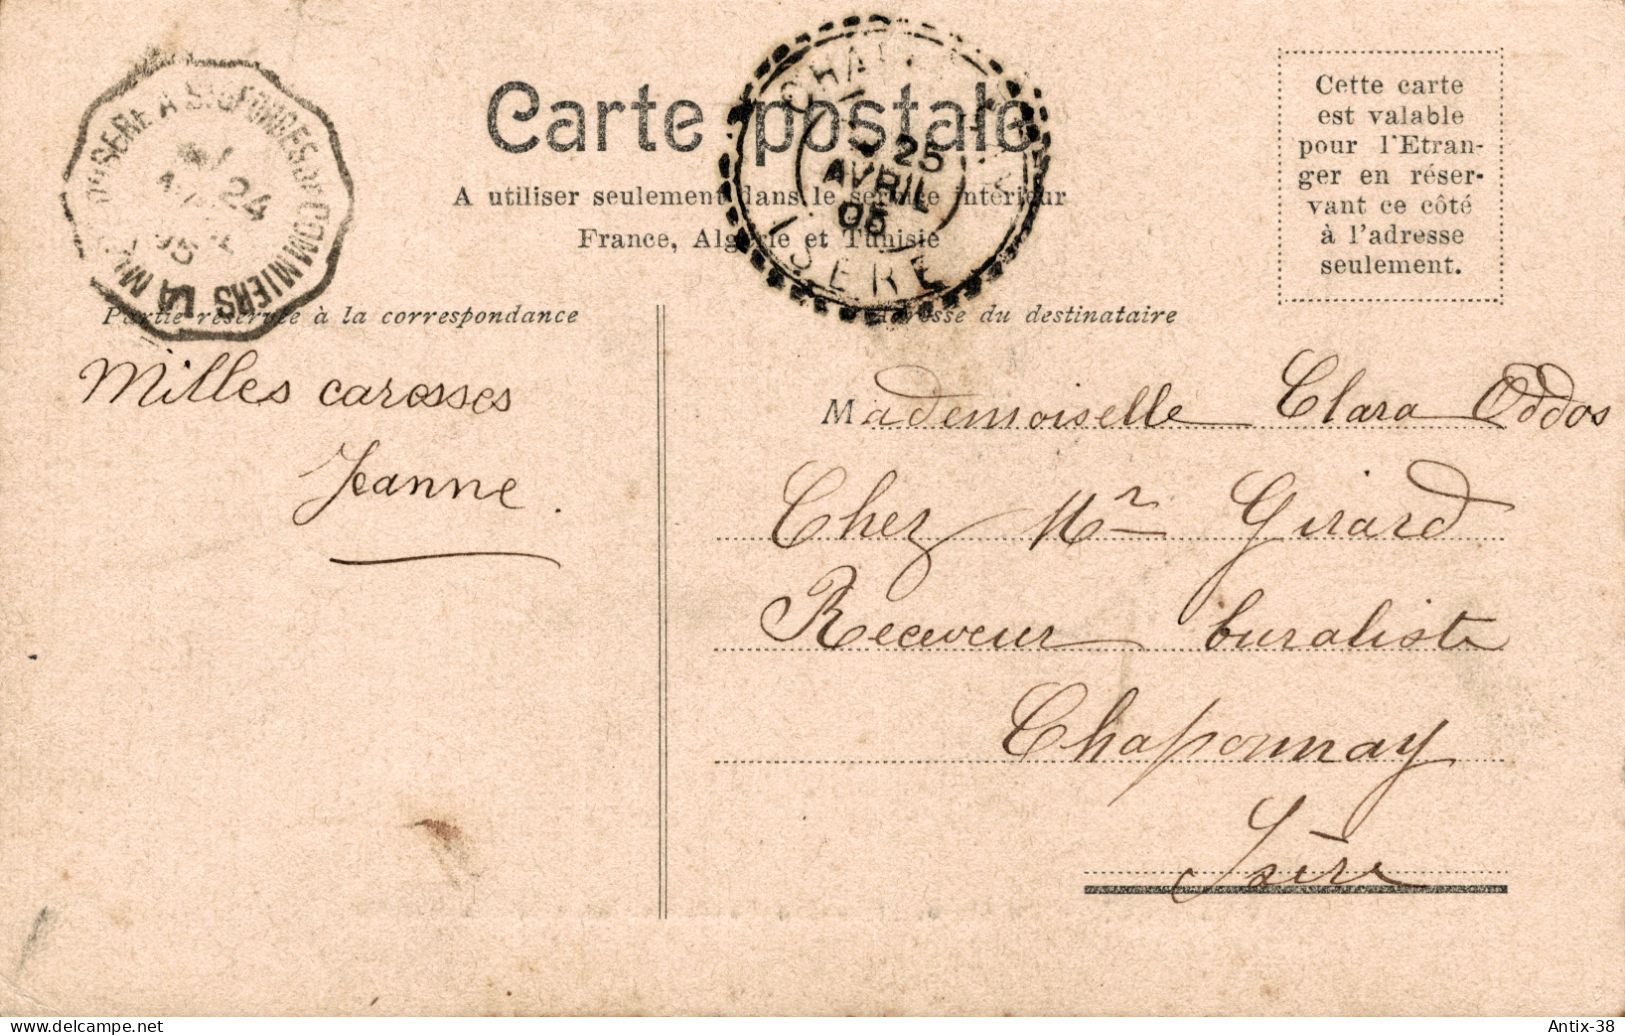 Carte postale
A utiliser seulement dans le service intérieur
France, Algérie et Tunisie
Cette carte
est valable
pour l'Etran-
ger en réser-
vant ce côté
à l'adresse
seulement.
24
LA MU
25
AVRIL
05
ISERE
Partie réservée à la correspondance
Adresse du destinataire
Milles caresses
Jeanne.
Mademoiselle Clara Oddos
Chez Mr Girard
Receveur buraliste
Chaponnay
Isère
delcampe.net
Antix-38